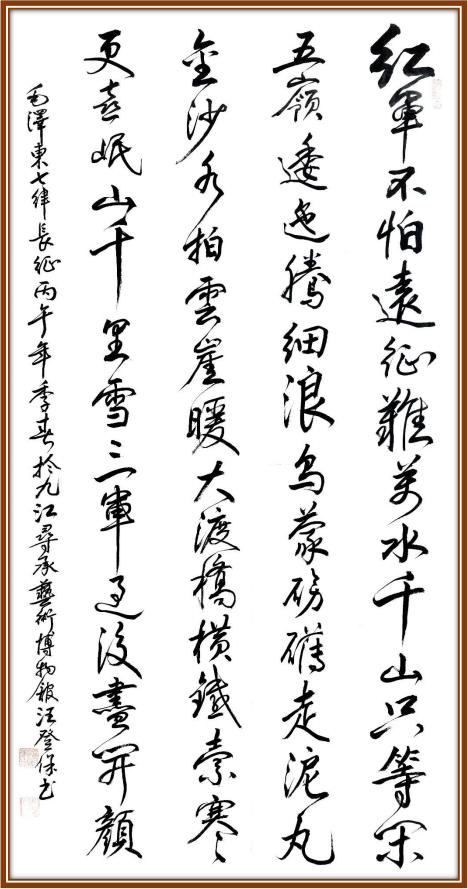 紅軍不怕遠征難萬水千山只等閑
五嶺逶迤騰細浪烏蒙磅礴走泥丸
金沙水拍雲崖暖大渡橋橫鐵索寒
更喜岷山千里雪三軍過後盡開顏
毛澤東七律長征丙午年季春於九江尋承藝術博物館汪登保書